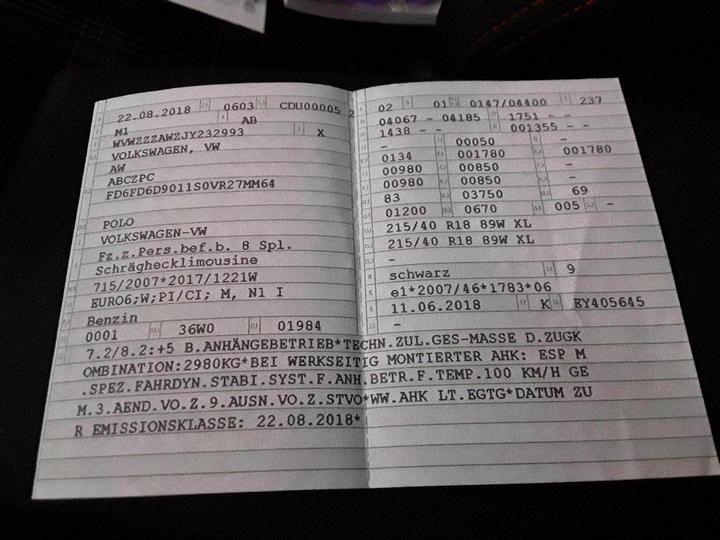 22.08.2018 0603 CDU00005 2
M1 AB
WVWZZZAWZJY232993 X
VOLKSWAGEN, VW
AW
ABCZPC
FD6FD6D9011S0VR27MM64
POLO
VOLKSWAGEN-VW
Fz.z.Pers.bef.b. 8 Spl.
Schräghecklimousine
715/2007*2017/1221W
EURO6;W;PI/CI; M, N1 I
Benzin
0001 36W0 01984
02 01 0147/04400 237
04067 - 04185 1751 - -
1438 - - 001355 - -
- 00050 -
0134 001780 001780
00980 00850 -
00980 00850 -
83 03750 69
01200 0670 005 -
215/40 R18 89W XL
215/40 R18 89W XL
-
schwarz 9
e1*2007/46*1783*06
11.06.2018 K EY405645
-
7.2/8.2:+5 B.ANHÄNGEBETRIEB*TECHN.ZUL.GES-MASSE D.ZUGK
OMBINATION:2980KG*BEI WERKSEITIG MONTIERTER AHK: ESP M
.SPEZ.FAHRDYN.STABI.SYST.F.ANH.BETR.F.TEMP.100 KM/H GE
M.3.AEND.VO.Z.9.AUSN.VO.Z.STVO*WW.AHK LT.EGTG*DATUM ZU
R EMISSIONSKLASSE: 22.08.2018*